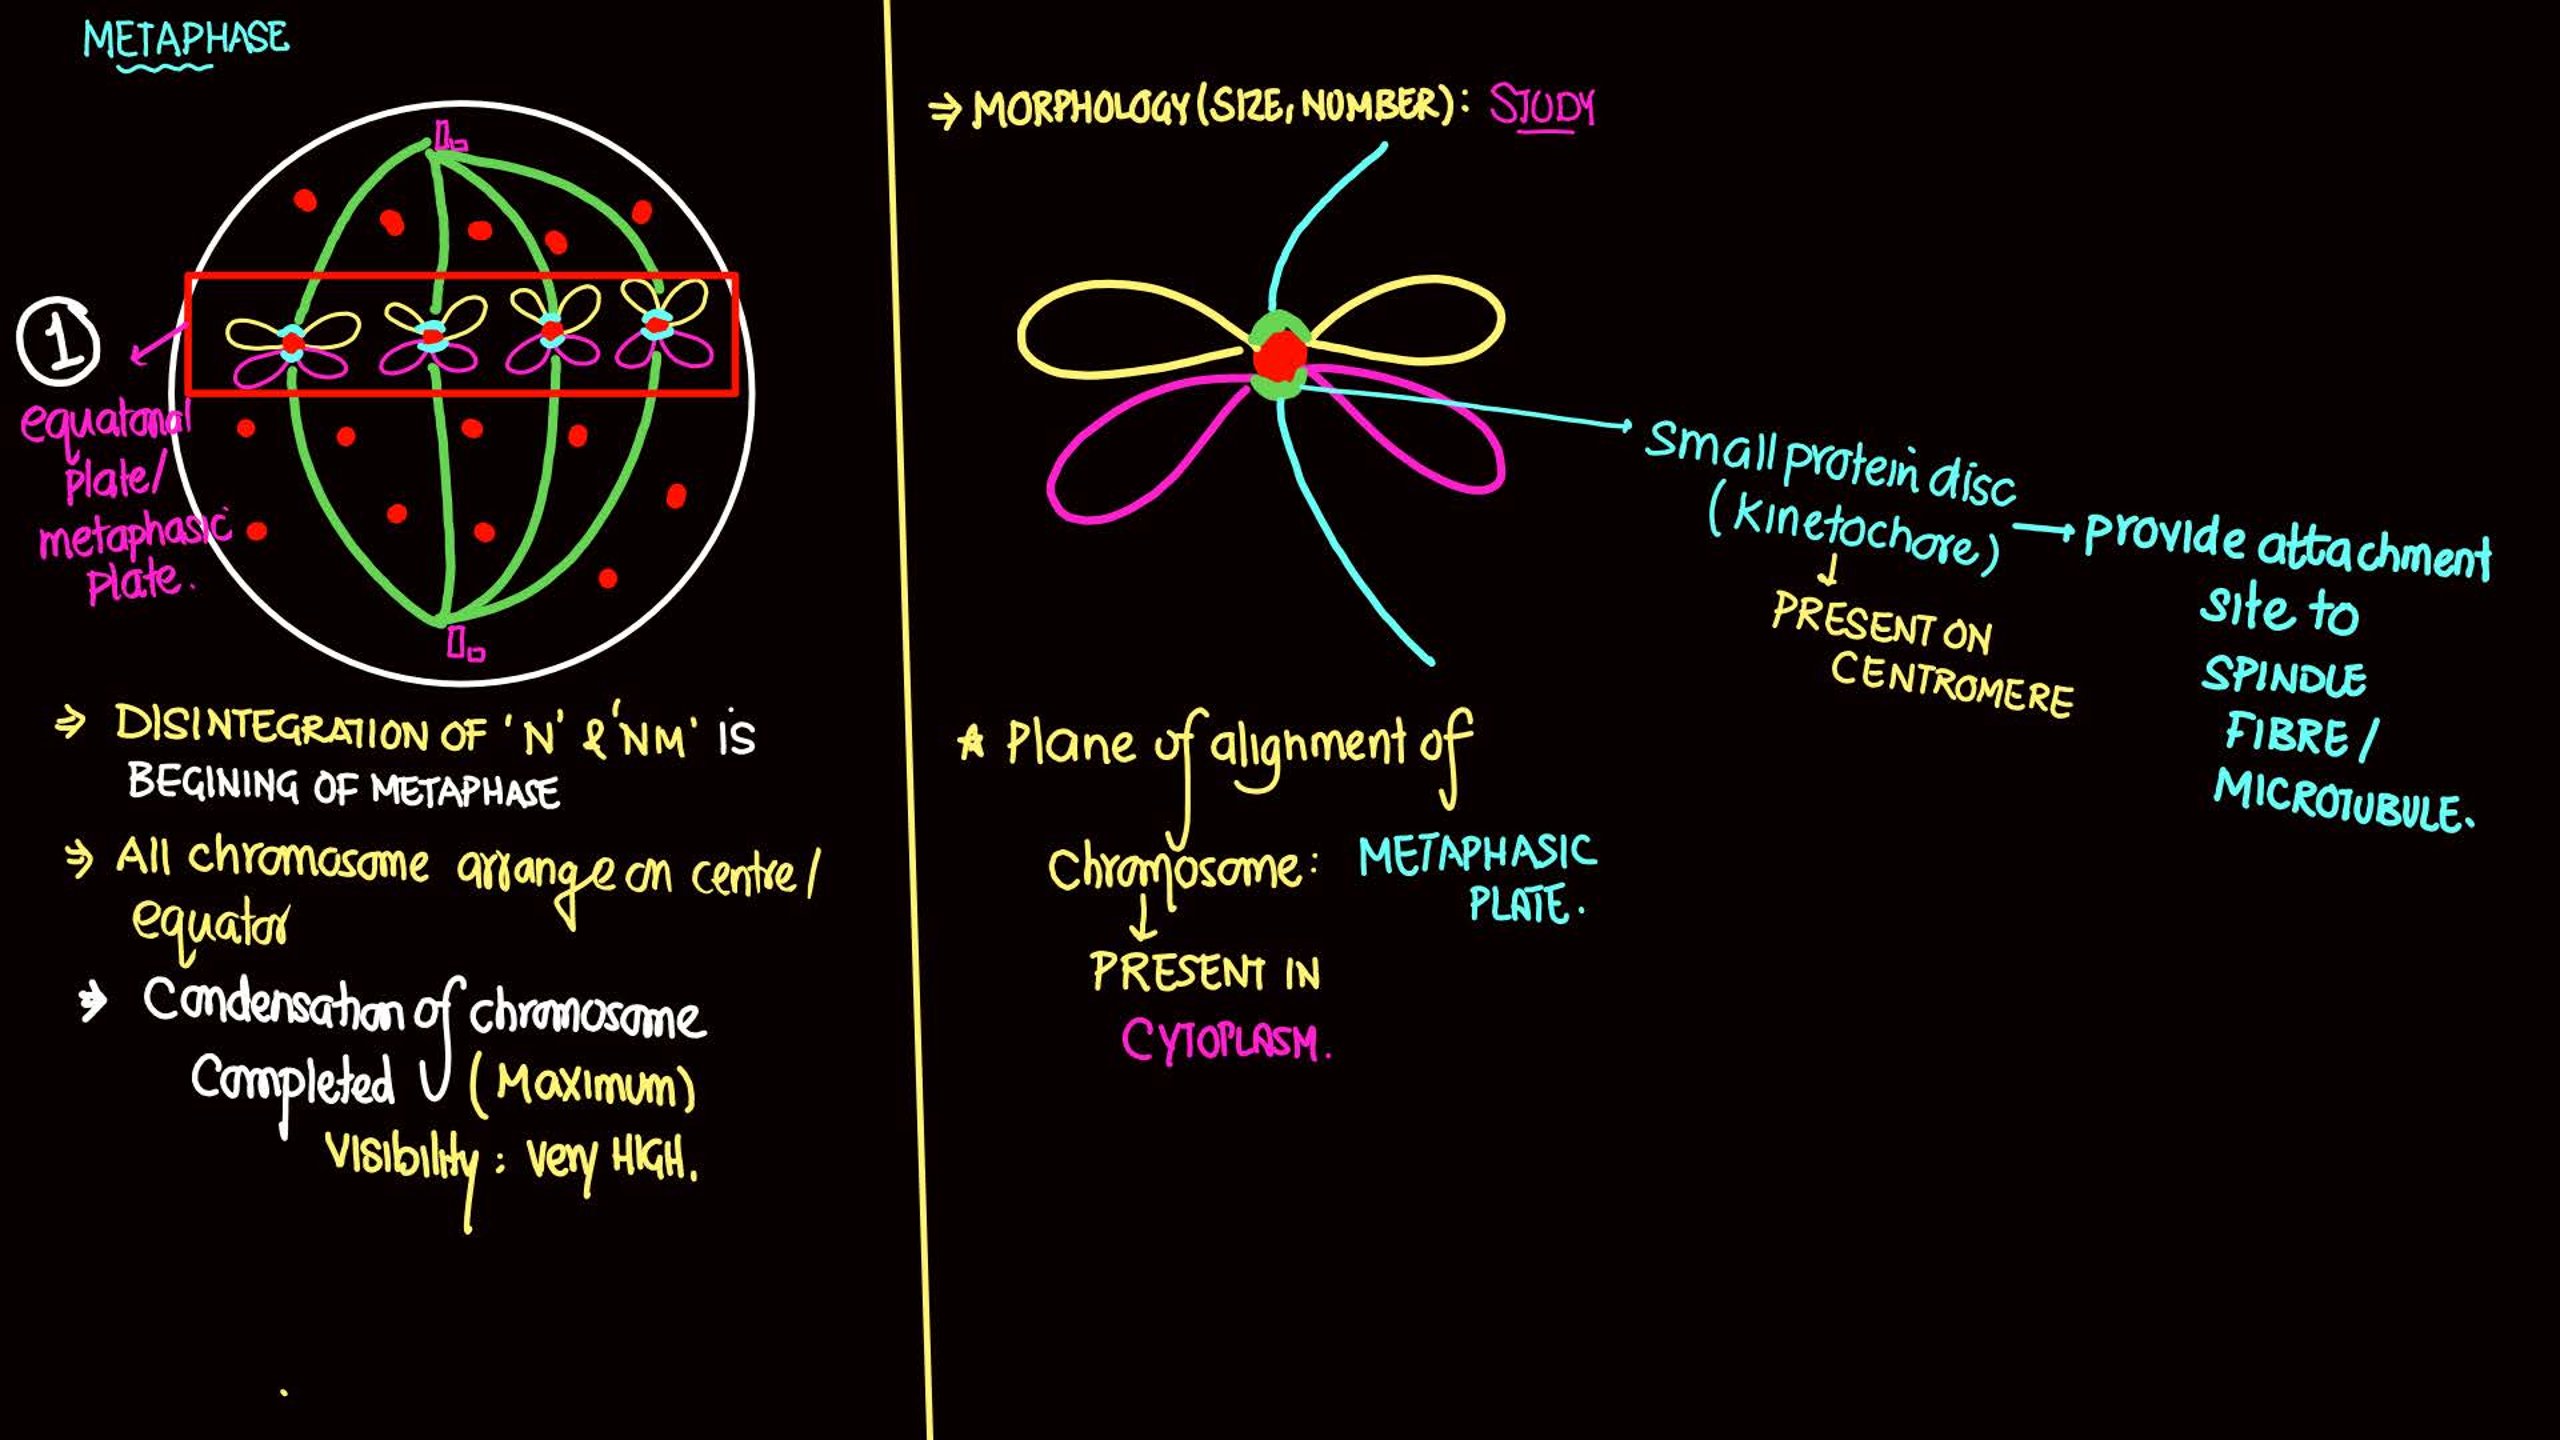 METAPHASE
1
equatorial
plate/
metaphasic
plate.
⇒ DISINTEGRATION OF 'N' & 'NM' is
BEGINING OF METAPHASE
⇒ All chromosome arrange on centre/
equator
⇒ Condensation of chromosome
Completed (Maximum)
Visibility : very HIGH.
⇒ MORPHOLOGY (SIZE, NUMBER): STUDY
Small protein disc
(Kinetochore) → provide attachment
site to
SPINDLE
FIBRE /
MICROTUBULE.
↓
PRESENT ON
CENTROMERE
★ Plane of alignment of
Chromosome: METAPHASIC
PLATE.
↓
PRESENT IN
CYTOPLASM.